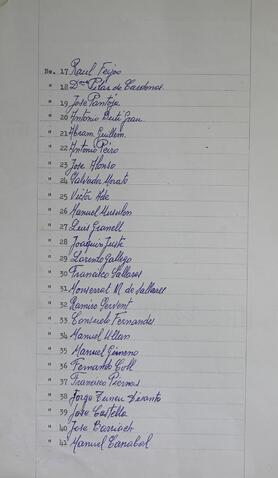 No. 17 Raul Feijoo
" 18 Dña Pilar de Cardona
" 19 Jose Pantoja
" 20 Antonio Grau
" 21 Abram Guillem
" 22 Antonio Peiro
" 23 Jose Alonso
" 24 Salvador Morato
" 25 Victor
" 26 Manuel
" 27 Luis Granell
" 28 Joaquin Juste
" 29 Lorenzo Gallego
" 30 Francisco Sallares
" 31 Monserrat M. de Sallares
" 32 Ramiro Gervent
" 33 Consuelo Fernandes
" 34 Manuel
" 35 Manuel Gimeno
" 36 Fernando Coll
" 37 Francisco Piernas
" 38 Jorge
" 39 Jose Castella
" 40 Jose
" 41 Manuel Canabal